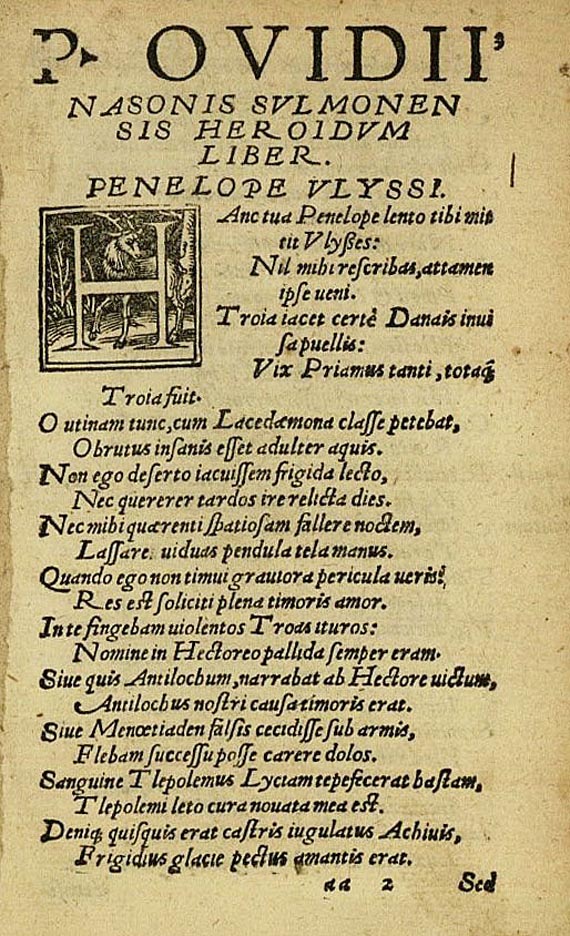 P. OVIDII
NASONIS SVLMONEN
SIS HEROIDVM
LIBER.
PENELOPE VLYSSI.
HAnc tua Penelope lento tibi mit
tit Vlyßes:
Nil mihi rescribas, attamen
ipse ueni.
Troia iacet certè Danais inui
sa puellis:
Vix Priamus tanti, totaq́;
Troia fuit.
O utinam tunc, cum Lacedæmona classe petebat,
Obrutus insanis esset adulter aquis.
Non ego deserto iacuissem frigida lecto,
Nec quererer tardos ire relicta dies.
Nec mihi quærenti spatiosam fallere noctem,
Lassare uiduas pendula tela manus.
Quando ego non timui grauiora pericula ueris?
Res est soliciti plena timoris amor.
In te fingebam uiolentos Troas ituros:
Nomine in Hectoreo pallida semper eram.
Siue quis Antilochum, narrabat ab Hectore uictum,
Antilochus nostri causa timoris erat.
Siue Menœtiaden falsis cecidisse sub armis,
Flebam successu posse carere dolos.
Sanguine Tlepolemus Lyciam tepefecerat hastam,
Tlepolemi leto cura nouata mea est.
Deniq; quisquis erat castris iugulatus Achiuis,
Frigidius glacie pectus amantis erat.
aa 2 Sed